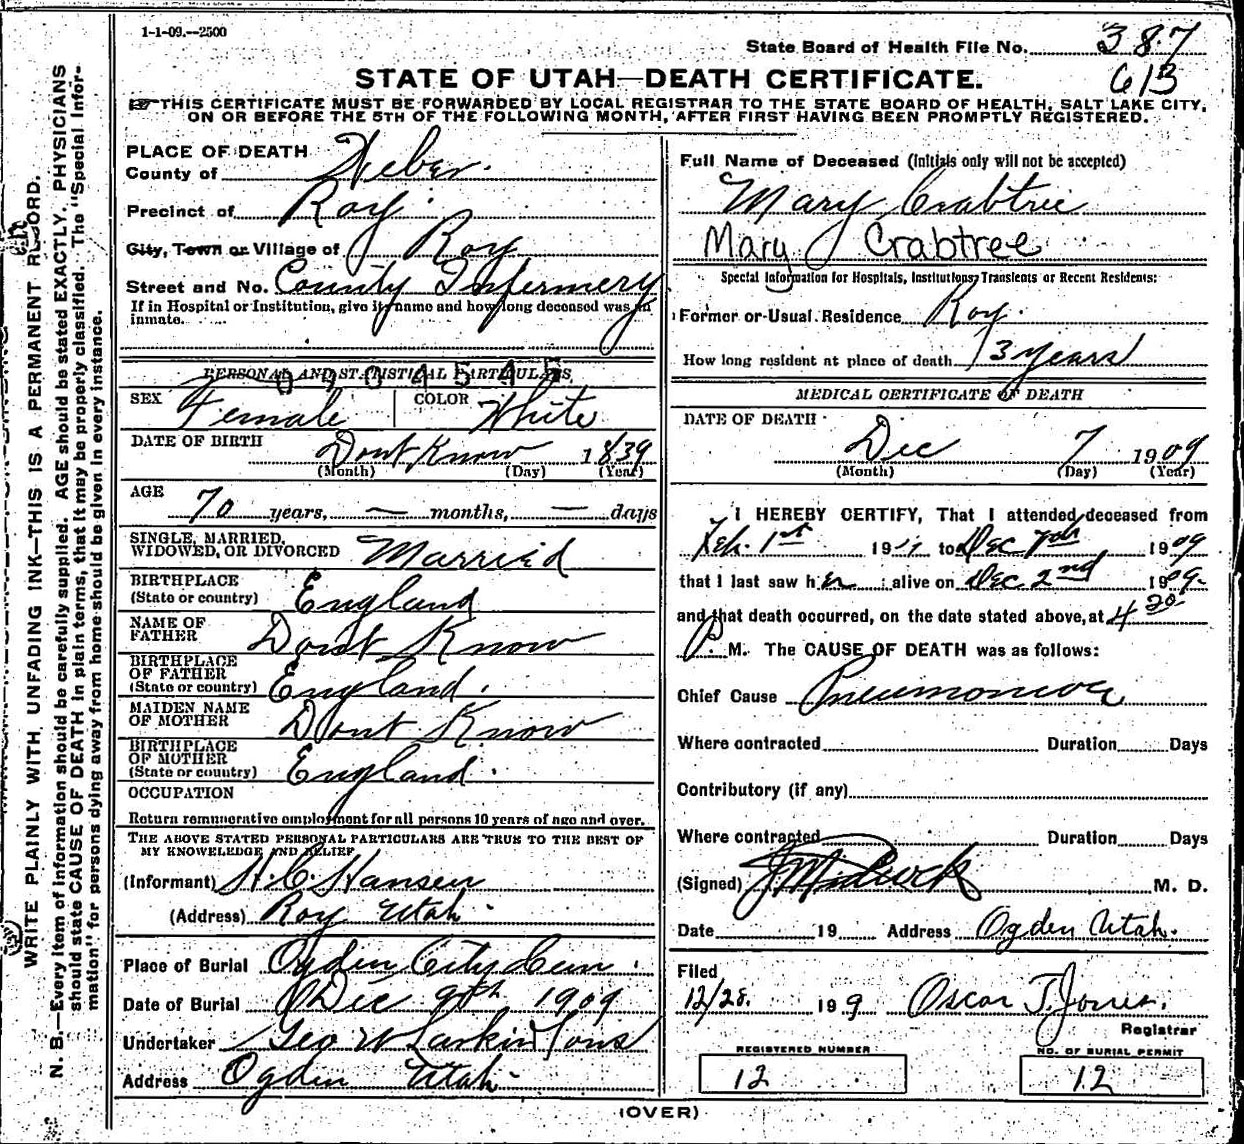 1-1-09.--2500
State Board of Health File No. 387
613
STATE OF UTAH—DEATH CERTIFICATE.
THIS CERTIFICATE MUST BE FORWARDED BY LOCAL REGISTRAR TO THE STATE BOARD OF HEALTH, SALT LAKE CITY,
ON OR BEFORE THE 5TH OF THE FOLLOWING MONTH, AFTER FIRST HAVING BEEN PROMPTLY REGISTERED.
WRITE PLAINLY WITH UNFADING INK—THIS IS A PERMANENT RECORD.
N. B.—Every item of information should be carefully supplied. AGE should be stated EXACTLY. PHYSICIANS
should state CAUSE OF DEATH in plain terms, that it may be properly classified. The "Special Infor-
mation" for persons dying away from home should be given in every instance.
PLACE OF DEATH
County of Weber.
Precinct of Roy.
City, Town or Village of Roy
Street and No. County Infermery
If in Hospital or Institution, give its name and how long deceased was an
inmate.
PERSONAL AND STATISTICAL PARTICULARS
SEX Female COLOR White
DATE OF BIRTH Dont Know 1839
(Month) (Day) (Year)
AGE
70 years, — months, — days
SINGLE, MARRIED,
WIDOWED, OR DIVORCED Married
BIRTHPLACE
(State or country) England
NAME OF
FATHER Dont Know
BIRTHPLACE
OF FATHER
(State or country) England.
MAIDEN NAME
OF MOTHER Dont Know
BIRTHPLACE
OF MOTHER
(State or country) England.
OCCUPATION
Return remunerative employment for all persons 10 years of age and over.
THE ABOVE STATED PERSONAL PARTICULARS ARE TRUE TO THE BEST OF
MY KNOWLEDGE AND BELIEF
(Informant) H. C. Hansen
(Address) Roy Utah.
Place of Burial Ogden City Cem.
Date of Burial Dec 9th 1909
Undertaker Geo W Larkin Sons
Address Ogden Utah.
Full Name of Deceased (Initials only will not be accepted)
Mary Crabtree
Mary Crabtree
Special Information for Hospitals, Institutions, Transients or Recent Residents:
Former or Usual Residence Roy.
How long resident at place of death 3 years
MEDICAL CERTIFICATE OF DEATH
DATE OF DEATH
Dec 7 1909
(Month) (Day) (Year)
I HEREBY CERTIFY, That I attended deceased from
Feb. 1st 19 to Dec 7th 1909
that I last saw her alive on Dec 2nd 1909.
and that death occurred, on the date stated above, at 4 30
P. M. The CAUSE OF DEATH was as follows:
Chief Cause
Where contracted Duration Days
Contributory (if any)
Where contracted Duration Days
(Signed) M. D.
Date 19 Address Ogden Utah.
Filed
12/28. 1909 Oscar T. Jones.
Registrar
REGISTERED NUMBER
12
NO. OF BURIAL PERMIT
12
(OVER)